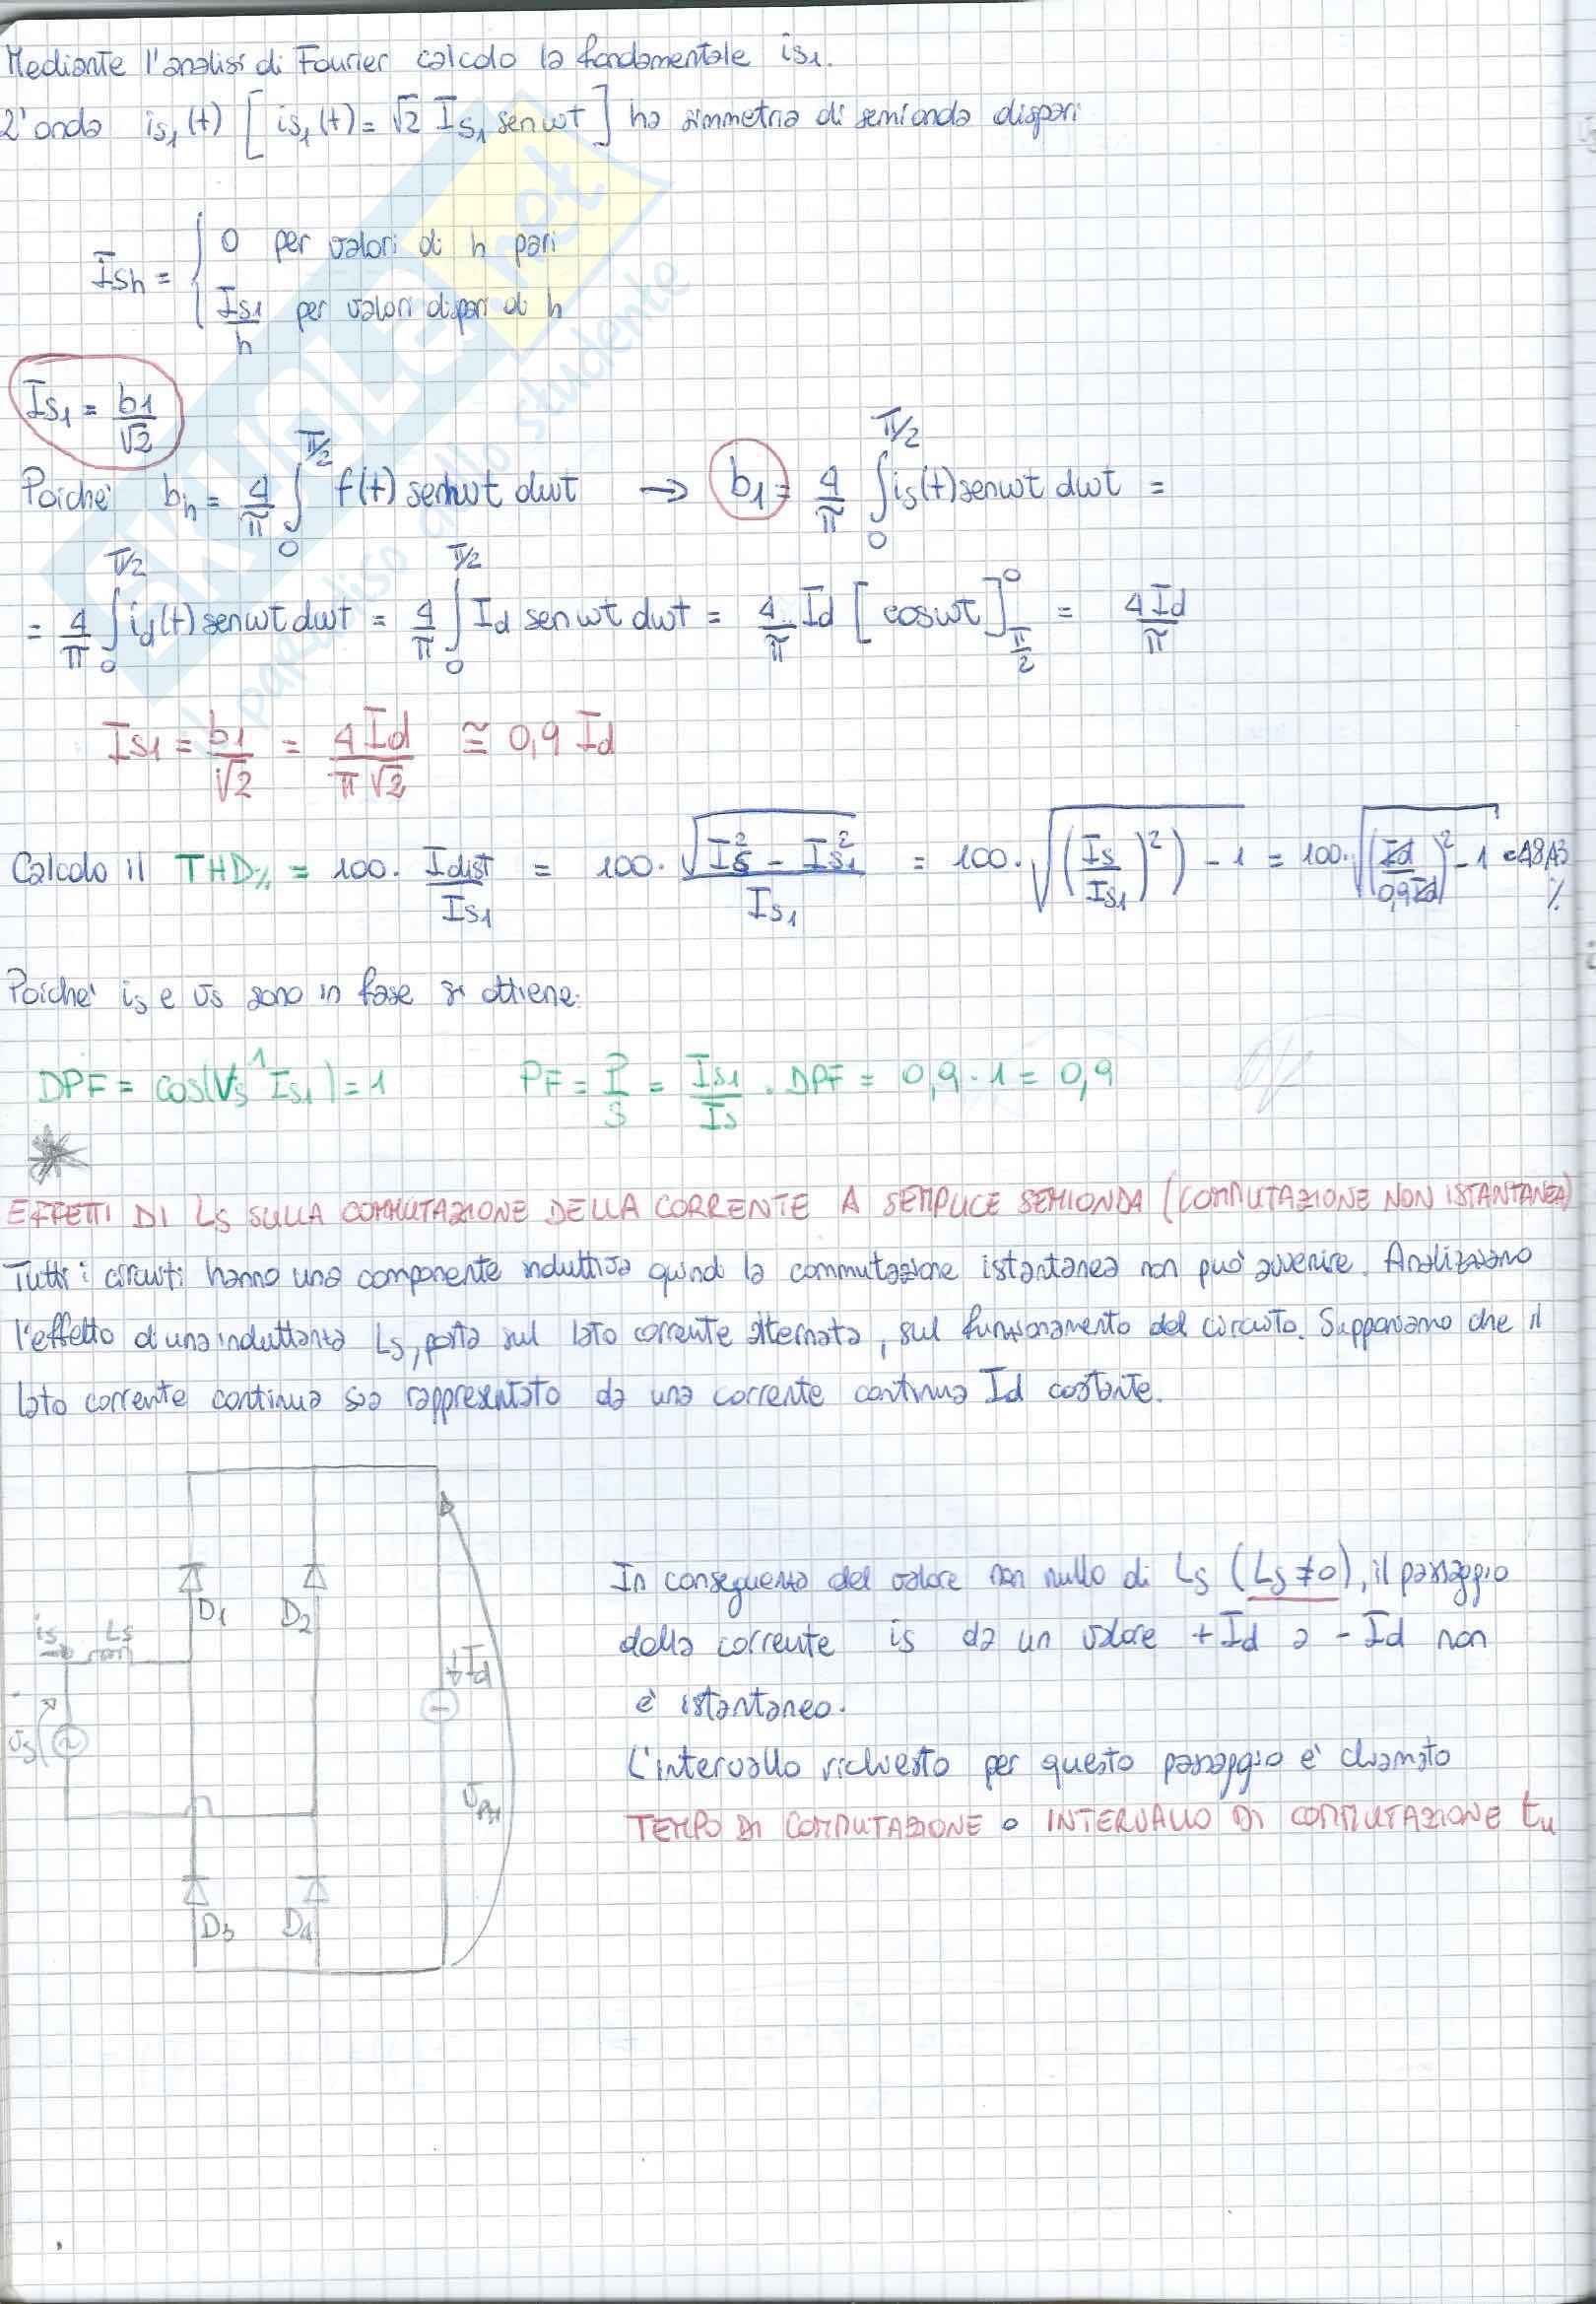 Mediante l'analisi di Fourier calcolo la fondamentale is1.
L'onda is1(t) [is1(t) = √2 Is1 senωt] ha simmetria di semionda dispari
Ish = { 0 per valori di h pari
Is1/h per valori dispari di h
Is1 = b1/√2
Poiché bh = 4/π ∫0^π/2 f(t) senhωt dωt → b1 = 4/π ∫0^π/2 is(t) senωt dωt =
= 4/π ∫0^π/2 id(t) senωt dωt = 4/π ∫0^π/2 Id senωt dωt = 4/π Id [cosωt]^0_π/2 = 4Id/π
Is1 = b1/√2 = 4Id/π√2 ≅ 0,9 Id
Calcolo il THD% = 100. Idist/Is1 = 100. √Is² - Is1²/Is1 = 100. √(Is/Is1)²) - 1 = 100. √(Id/0,9Id)² - 1 = 48,43 %
Poiché is e vs sono in fase si ottiene:
DPF = cos(Vs^Is1) = 1 PF = P/S = Is1/Is . DPF = 0,9 . 1 = 0,9
EFFETTI DI Ls SULLA COMMUTAZIONE DELLA CORRENTE A SEMPLICE SEMIONDA (COMMUTAZIONE NON ISTANTANEA)
Tutti i circuiti hanno una componente induttiva quindi la commutazione istantanea non può avvenire. Analizziamo
l'effetto di una induttanza Ls, posta sul lato corrente alternata, sul funzionamento del circuito. Supponiamo che il
lato corrente continua sia rappresentato da una corrente continua Id costante.
D1
D2
is Ls
Id
vs
D3
D4
In conseguenza del valore non nullo di Ls (Ls ≠ 0), il passaggio
della corrente is da un valore +Id a -Id non
è istantaneo.
L'intervallo richiesto per questo passaggio è chiamato
TEMPO DI COMMUTAZIONE o INTERVALLO DI COMMUTAZIONE tu
SKUOLA.net
il paradiso dello studente